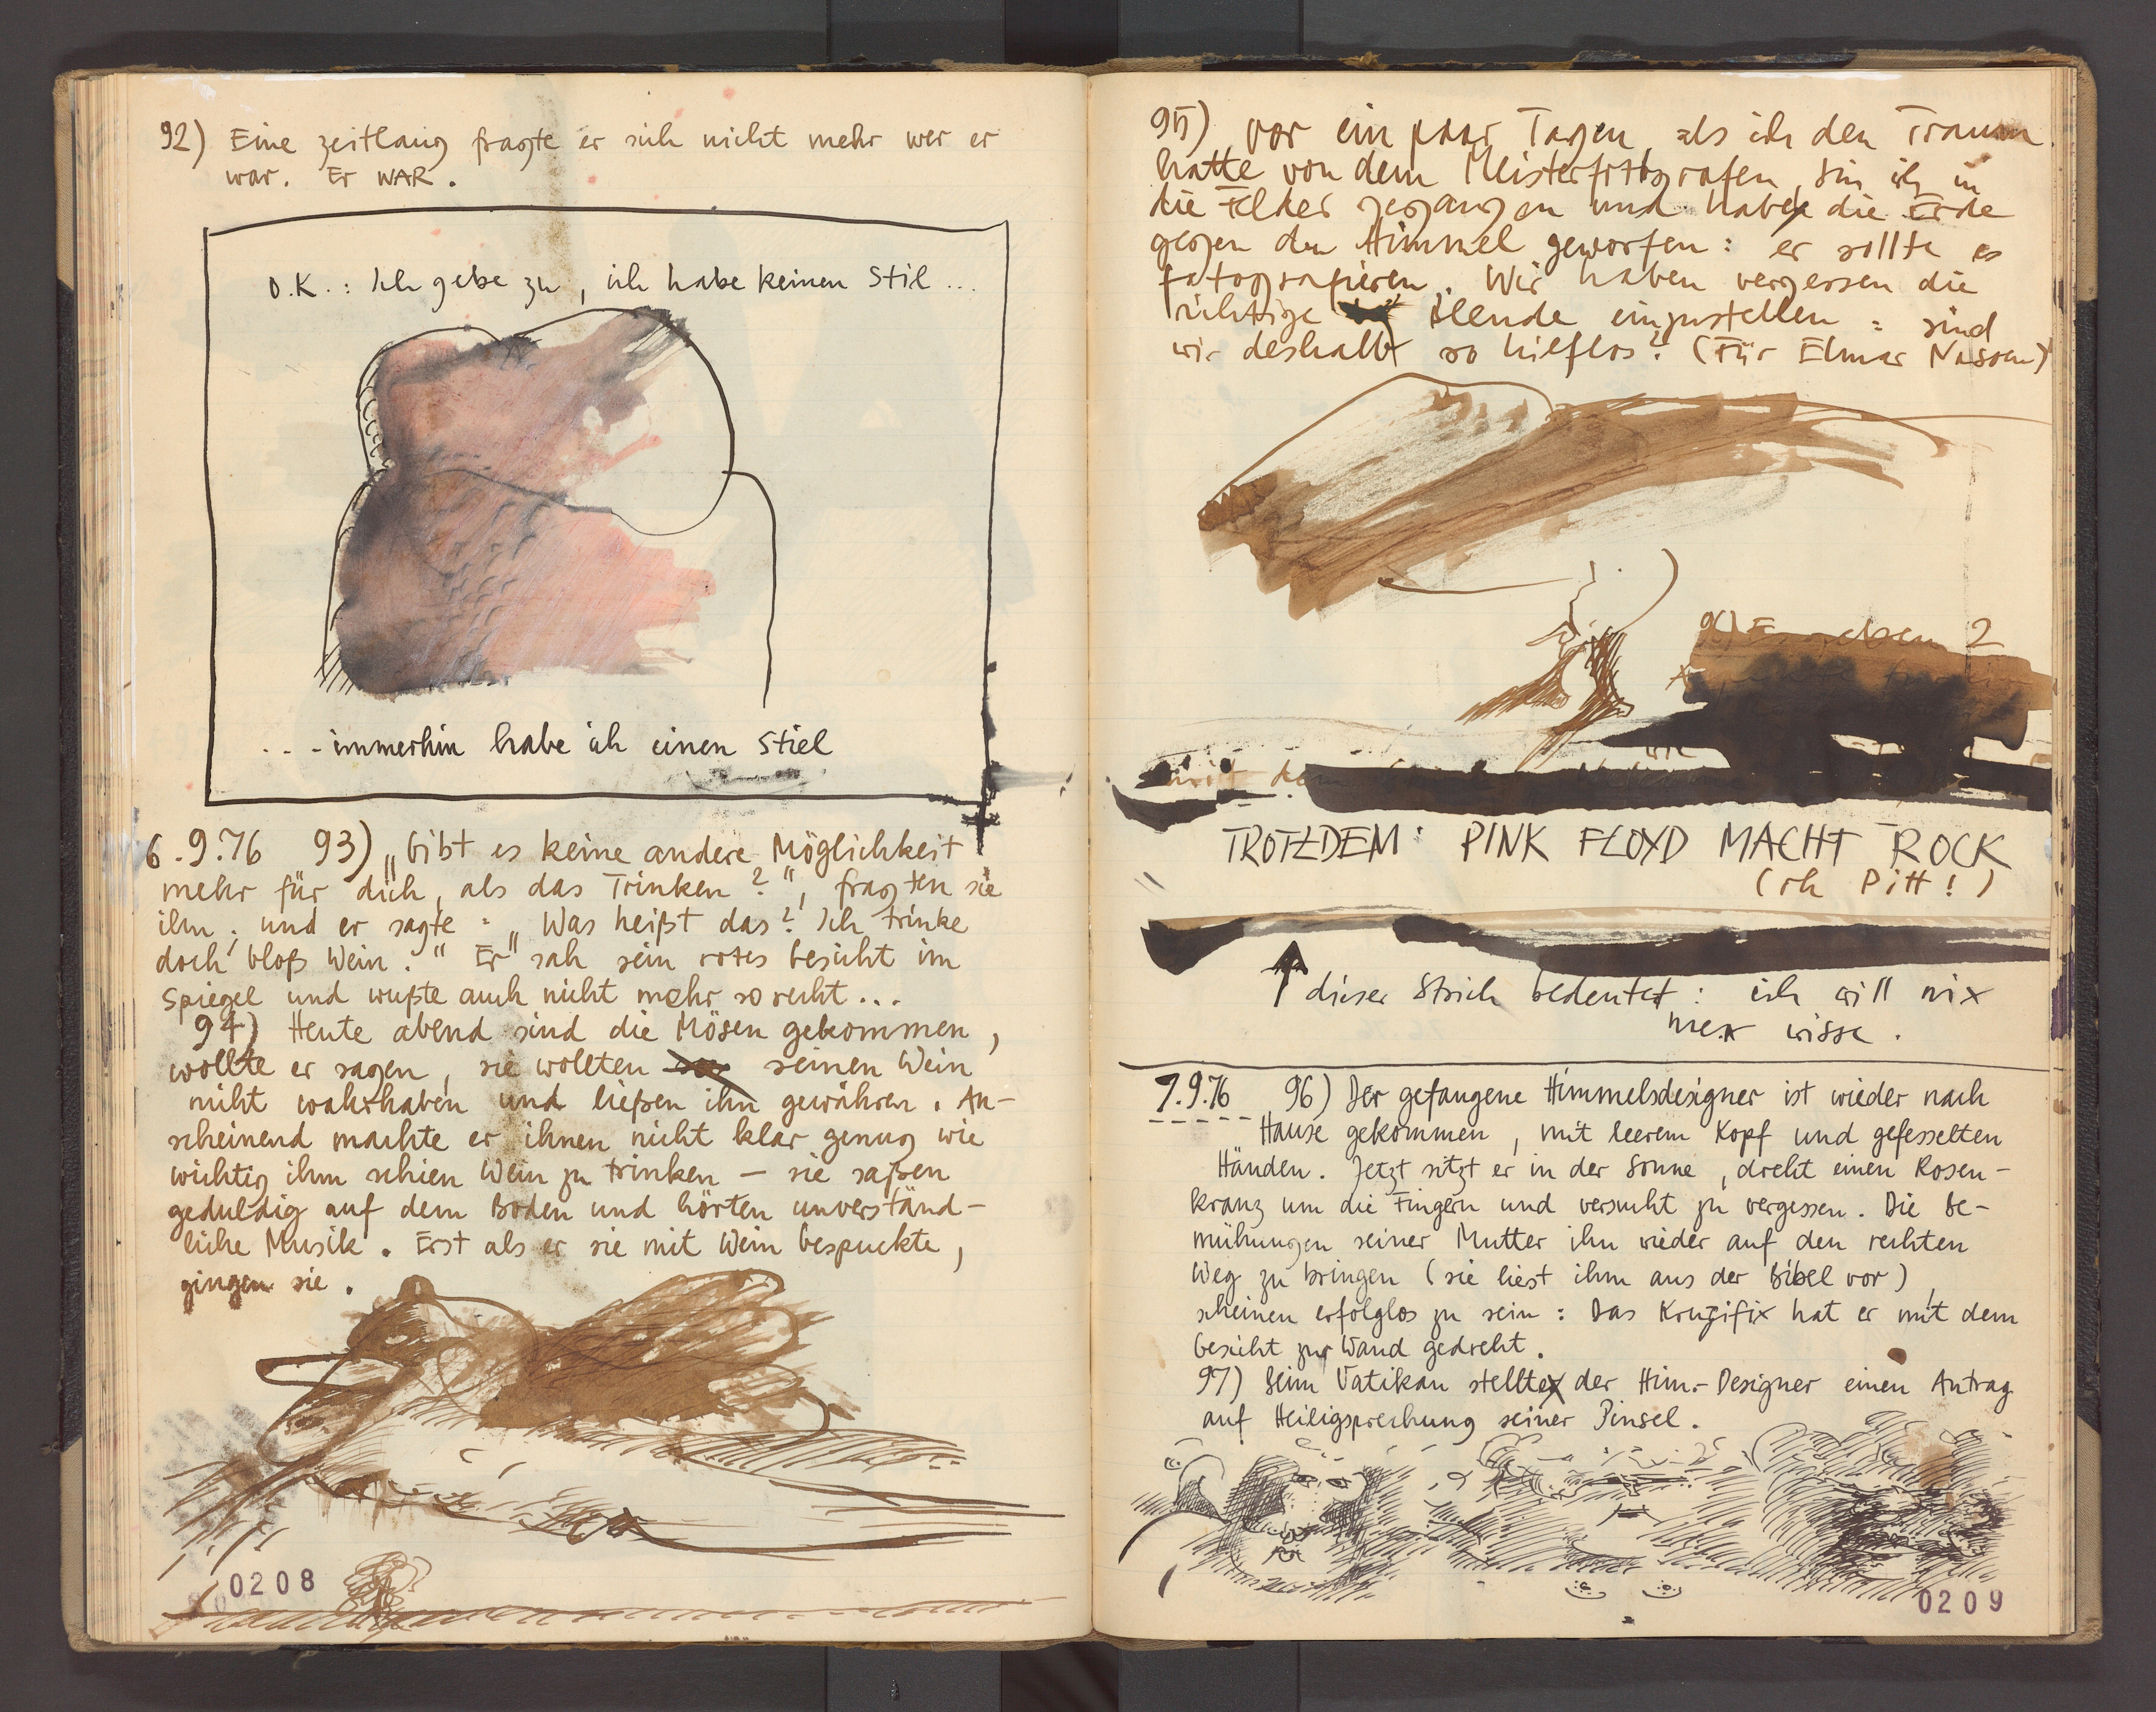 92) Eine zeitlang fragte er sich nicht mehr wer er
war. Er WAR.
O.K.: Ich gebe zu, ich habe keinen Stil...
...immerhin habe ich einen Stiel
6.9.76 93) „Gibt es keine andere Möglichkeit
mehr für dich, als das Trinken?", fragten sie
ihn, und er sagte: „Was heißt das? Ich trinke
doch bloß Wein." Er sah sein rotes Gesicht im
Spiegel und wußte auch nicht mehr so recht...
94) Heute abend sind die Mösen gekommen,
wollte er sagen, sie wollten seinen Wein
nicht wahrhaben und ließen ihn gewähren. An-
scheinend machte er ihnen nicht klar genug wie
wichtig ihm schien Wein zu trinken – sie saßen
geduldig auf dem Boden und hörten unverständ-
liche Musik. Erst als er sie mit Wein bespuckte,
gingen sie.
0208
95) Vor ein paar Tagen, als ich den Traum
hatte von dem Meisterfotografen, bin ich in
die Felder gegangen und habe die Erde
gegen den Himmel geworfen: er sollte es
fotografieren. Wir haben vergessen die
richtige Blende einzustellen: sind
wir deshalb so hilflos? (Für Elmar
96) 2
mit dem
TROTZDEM: PINK FLOYD MACHT ROCK
(oh Pitt!)
dieser Strich bedeutet: ich will nix
mer wisse.
7.9.76 96) Der gefangene Himmelsdesigner ist wieder nach
Hause gekommen, mit leerem Kopf und gefesselten
Händen. Jetzt sitzt er in der Sonne, dreht einen Rosen-
kranz um die Fingern und versucht zu vergessen. Die Be-
mühungen seiner Mutter ihn wieder auf den rechten
Weg zu bringen (sie liest ihm aus der Bibel vor),
scheinen erfolglos zu sein: Das Kruzifix hat er mit dem
Gesicht zur Wand gedreht.
97) Beim Vatikan stellte der Him.-Designer einen Antrag
auf Heiligsprechung seiner Pinsel.
0209